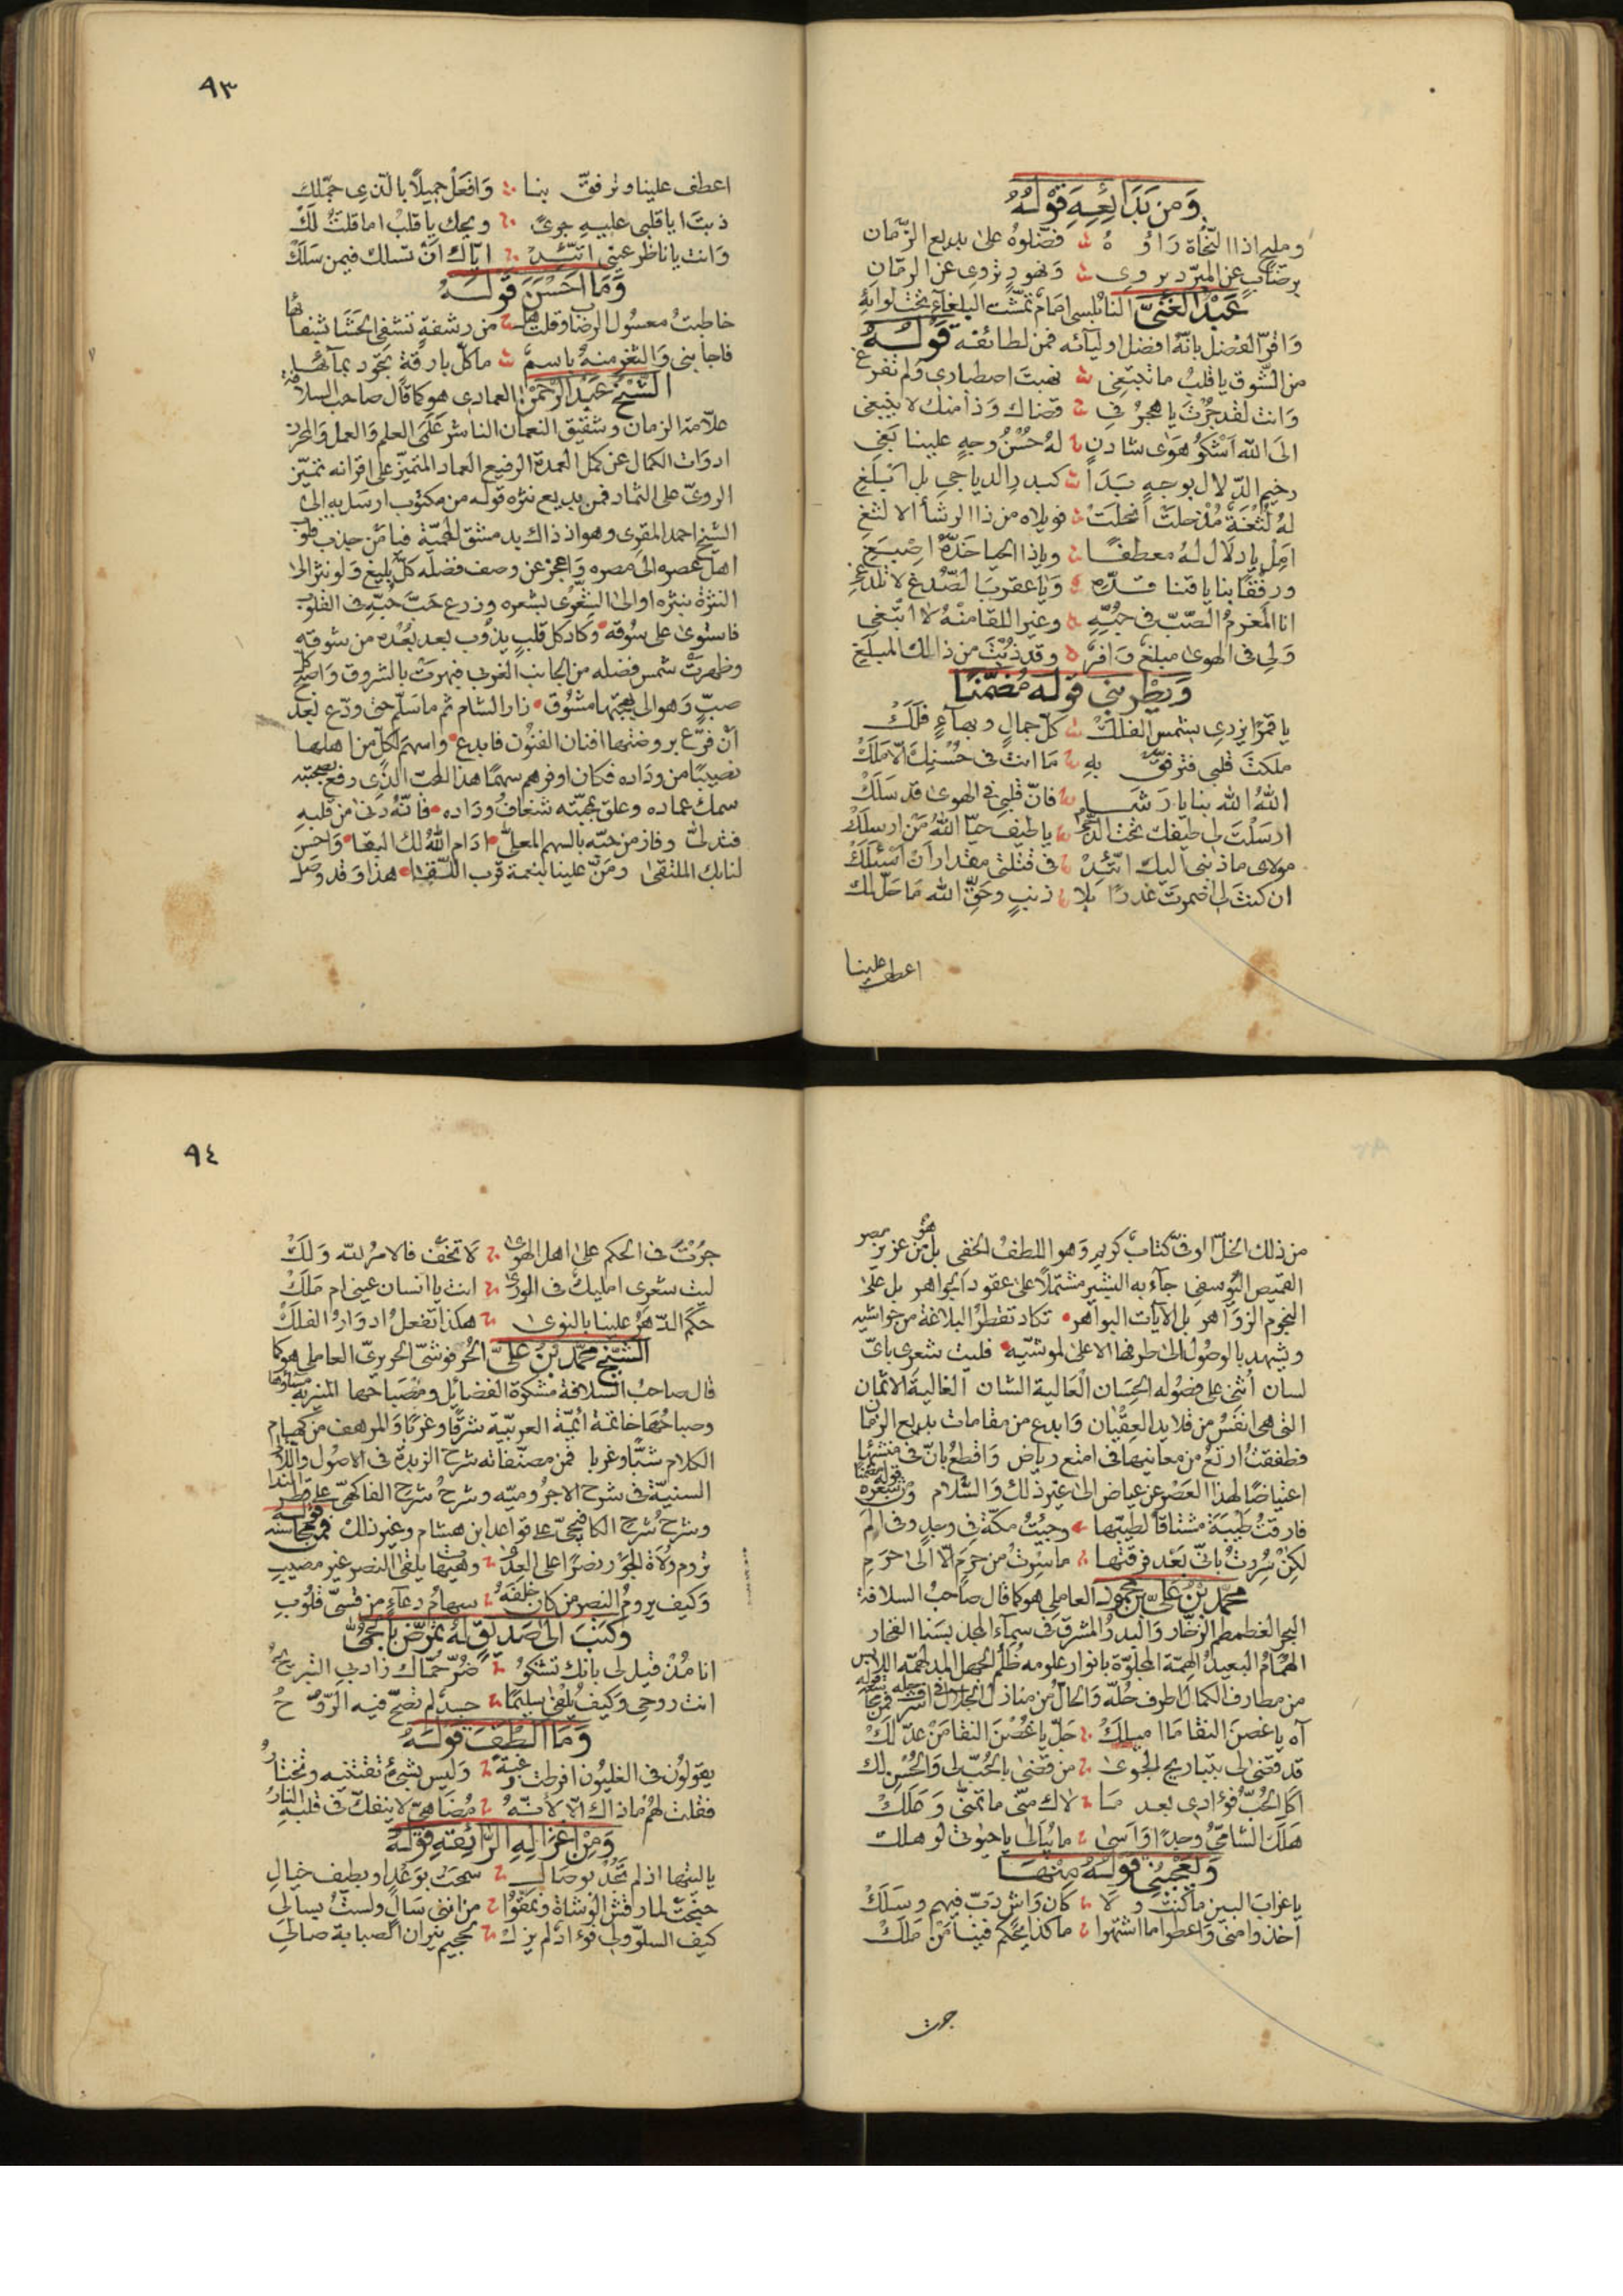 وَمِن بَدَائِعِهِ قَوْلُهُ
ومليح اذا النحاة رأوه فضّلوه على بديع الزمان
برضاب عن المبرد يروى ونهود تروى عن الرمان
عَبْدُ الغَنِيّ النابلسى امام تمشت البلغاء تحت لوائه
وَاقرّ الفضل بانّه افضل اوليائه فمن لطائفه قوله
من الشوق يا قلب ما تبتغى نهبت اصطبارى ولم تفرغ
وَانت لقد جُرْتَ يا هجر فى قضاك وَذا منك لا ينبغى
الى الله اشكو هوى شادن له حُسْنُ وجه علينا بغى
رخيم الدلال بوجه بَدَا كبدر الدياجى بل ابلغ
له لُثْغَةٌ مُذْ حلت أنحلت فويلاه من ذا الرشأ الالثغ
امِل يا دلال له معطفًا ويا ذا الحيا خدّه اصبغ
ورفقًا بنا يا قنا قدّه وَيا عقرب الصُّدغ لا تلدغ
انا المغرمُ الصَّبّ فى حُبِّهِ وغير اللقا منهُ لا ابتغى
وَلى فى الهوى مبلغ وَافر وقد ذُبْتُ من ذالك المبلغ
وَيطْربنى قوله مُضَمّنًا
يا قمرًا يزرى بشمس الفلك كلّ جمال وبهاءٍ فلَكْ
ملكتَ قلبى فترفق به مَا انت فى حُسْنِكَ الّا مَلَكْ
اللهَ الله بنا يا رَشَا فانّ قلبى فى الهوى قد سَلَكْ
ارسَلْتَ لى طيفك تحت الدجى يا طيف حيّا اللهُ مَن ارسلَكْ
مولاى ما ذنبى اليك اتَّئِدْ فى قتلتى مقدار أن اَسْئَلَكْ
ان كنتَ لى اضمرت غدرًا بلا ذنبٍ وحَقِّ الله مَا حَلّ لك
اعطف علينا
٩٣
اعطف علينا وترفقّ بنا وَافعَل جميلًا بالّذى جمّلك
ذبتَ ايا قلبى عليه جوىً ويحك يا قلبُ اما قلتُ لَكْ
وَانت يا ناظر عينى اتّئِدْ ايّاك اَنْ تسلك فيمن سَلَكْ
وَمَا احْسَنَ قَوْلَهُ
خاطبتُ معسول الرضا وقلت هل من رشفةٍ تشفى الحَشَا بشفائها
فاجابنى وَالثغر منهُ باسمٌ ما كلّ بارقة تجود بمائها
الشّيْخ عَبْد الرَّحْمٰن العمادى هو كما قال صاحب السلافة
علّامة الزمان وشقيق النعمان الناشر عَلَمَى العلم وَالعمل وَالمحرز
ادوَات الكمال عن كمل العمدة الرفيع العماد المتميّز على اقرانه تميّز
الروىّ على الثماد فمن بديع نثره قوله من مكتوب ارسَل به الى
الشيخ احمد المقرى وهو اذ ذاك بدمشق المحميّة فيا مَن جذب قلوب
اهل عصره الى مصره وَاعجز عن وصف فضله كلّ بليغ وَلو نثر الى
النثرة بنثره او الى الشِعْرى بشعره وزرع حَبَّ حُبِّهِ فى القلوب
فاستوى على سُوقه وَكاد كل قلبٍ يذوب بعد بُعْدِهِ من شوقه
وظهرتْ شمس فضله من الجانب الغربى فبهرتْ بالشروق وَاصبح كلّ
صبٍّ وَهو الى بهجتها مشُوق زار الشام ثم ما سَلّم حتى ودّع بَعد
اَنْ فرّع بروضتها افنان الفنُون فابدع واسهَم لكلٍّ من اهلها
نصيبًا من ودَاده فكان اوفرهم سهمًا هذا المحبّ الذى رفع بصحبته
سمك عماده وعلق بمحبّته شغاف ودَاده فانّهُ دنى من قلبه
فتدلّى وفاز من حبّه بالسهم المعلّى ادَام اللهُ لك البقا وَاحسَن
لنا بك الملتقى ومَنّ علينا بنعمة قرب اللّقا هذا وَقد وصَل
من ذلك الخلّ الوفىّ كتابٌ كريم وَهو اللطف الخفى بل هُو من عزيز مصر
القميص اليُوسفى جاء به البشير مشتملًا على عقود الجواهر بل على
النجوم الزوَاهر بل الايات البواهر تكاد تقطُر البلاغة من حواشيه
ويشهد بالوصُول الى طرفها الاعلى لموشيّه فليت شعرى باىّ
لسان اُثنى على فصُوله الحسَان العَالية الشان الغالية الاثمان
التى هى انفَسُ من قلايد العِقْيان وَابدع من مقامات بديع الزمان
فطفقتُ ارتَعُ من معانيها فى امتع رياض وَاقطع بانّ فى منشئها
اعتياضًا لهذا العَصْر عن عياض الى غير ذلك وَالسّلام ومن شعره قوله مضمّنًا
فارقتُ طَيْبَةَ مشتاقًا لطيبتِها وجئتُ مكّة فى وجدٍ وفى الَم
لكِنْ سُررتُ بانّى بَعْد فرقتها ما سرتُ من حرمٍ الّا الى حَرَمِ
محمّد بْنُ عَلىّ بْن محمُود العاملى هو كما قال صاحبُ السلافة
البحر الغطمطم الزخّار وَالبدر المشرق فى سماء المجد بسنا الفخار
الهُمَامُ البعيدُ الهِمّة المجلوّة بانوار علومه ظُلَم الجهل المدلهمّة اللابس
من مطارف الكمال اظرف حُلّه وَالحالّ من منازل الجلال فى اشرف حلّه
آه يا غصنَ النقا مَا اميلكْ جَلّ يا غُصْنَ النقا مَنْ عدّلكْ
قد قضى لى بتباريح الجوى من قضى بالحُبِّ لى وَالحُسْنِ لك
اكل الحُبُّ فؤادى بعد مَا لاك منّى ما تمنّى وَعلَكْ
هَلَكَ السّامىُّ وجدًا وَاَسىً ما يُبَالى يا حيوتى لو هلك
وَيُعْجبُنى قَوْلهُ مِنْهَا
يا غراب البين ما كنتُ وَلا كان وَاشٍ دَبّ فيهم وسَلَكْ
اخذوا منّى وَاعطوا ما اشتهوا ما كذا يحكم فينا مَنْ مَلَكْ
جرت
٩٤
جُرْتَ فى الحكم على اهل الهوى لَا تَخَفْ فالامرُ لله وَلَكْ
ليت شعرى امليكٌ فى الورى انت يا انسان عينى ام مَلَكْ
حكَم الدّهرُ علينا بالنوى هكذا تفعلُ ادوَارُ الفلَكْ
الشّيْخ محمّد بْنُ عَلىّ الحُرفوشىّ الحريرىّ العاملى هو كما
قال صاحبُ السّلافة مشكوة الفضائل ومصبَاحها المنير به مساؤها
وصباحُهَا خاتمة ائمّة العربيّة شرقًا وغربًا وَالمرهف من كهام
الكلام شبًا وغربا فمن مصنّفاته شرح الزبدة فى الاصُول واللآلى
السنيّة فى شرح الاجرُوميّه وشرحُ شرح الفاكهىّ على قطر الندا
وشرحُ شرح الكافيجىّ على قواعد ابن هشام وغير ذلك فمن محاسنه قوله
تروم وُلاة الجَوْر نصرًا على العدى وهيهات يلقى النصر غير مصيب
وَكيف يروم النصر من كان خَلفَهُ سهامُ دعاءٍ من قسىّ قلُوبِ
وكتبَ الى صديق له تمرّض بالحمّى
انا مُذْ قيل لى بانك تشكو ضُرّ حُمّاك زاد بى التبريحُ
انت روحى وَكيف يلقى سليمًا جسدٌ لم تصحّ فيه الرّوحُ
وَمَا اَلْطَفَ قَوْلَهُ
يقولُون فى الغليُون افرطت رغبةً وَليس بشىءٍ تقتنيه وتختارُ
فقلت لهُم ماذاك الّا لانّهُ مُضَاهىّ لا ينفكّ فى قلبه النارُ
وَمِنْ اَغزَالِهِ الرّائِقَةِ قَوْلُهُ
يا ليتها اذ لم تَجُدْ بوصَال سمحتْ بوَعْدٍ او بطيف خيال
جنحَتْ لما رقش الوُشاة ونمّقُوا من انّنى سَالٍ ولستُ بسالى
كيف السلوّ ولى فؤاد لم يزل بجحيم نيران الصبابة صالى